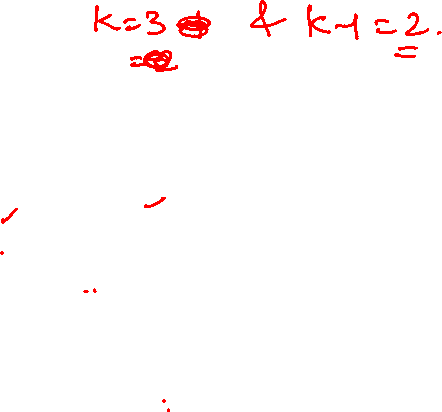 k=3 & k-1=2.
=